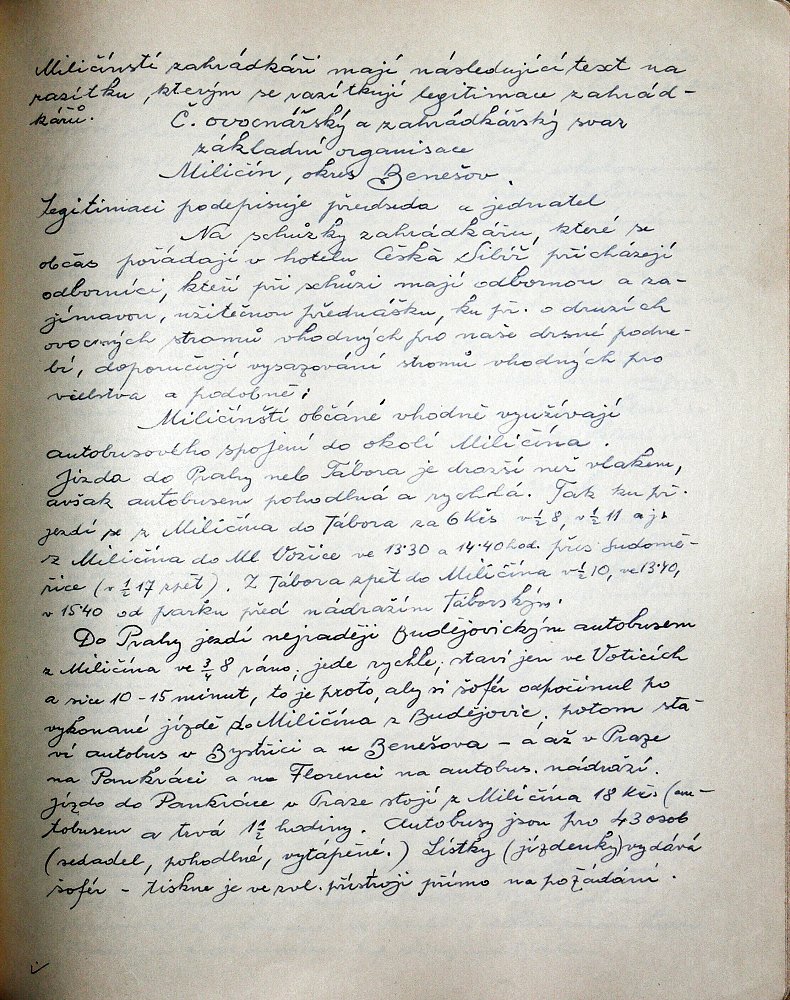 Miličínstí zahrádkáři mají následující text na
razítku, kterým se razítkují legitimace zahrád-
kářů.
Č. ovocnářský a zahrádkářský svaz
základní organisace
Miličín, okres Benešov.
Legitimaci podepisuje předseda a jednatel
Na schůzky zahrádkářů, které se
občas pořádají v hotelu Česká Sibiř přicházejí
odborníci, kteří při schůzi mají odbornou a za-
jímavou, užitečnou přednášku, ku př. o druzích
ovocných stromů vhodných pro naše drsné podne-
bí, doporučují vysazování stromů vhodných pro
včelstva a podobně;
Miličínští občané vhodně využívají
autobusového spojení do okolí Miličína.
Jízda do Prahy neb Tábora je drazší než vlakem,
avšak autobusem pohodlná a rychdá. Tak ku př.
jezdí se z Miličína do Tábora za 6 Kčs v ½ 8, v ½ 11 a j.
z Miličína do Ml Vožice ve 13·30 a 14·40 hod. přes Sudomě-
řice (v ½ 17 zpět). Z Tábora zpět do Miličína v ½ 10, ve 13·40,
v 15·40 od parku před nádražím Táborským.
Do Prahy jezdí nejraději Budějovickým autobusem
z Miličína ve ¾ 8 ráno; jede rychle, staví jen ve Voticích
a sice 10-15 minut, to je proto, aby si šofér odpočinul po
vykonané jízdě do Miličína z Budějovic, potom sta-
ví autobus v Bystřici a u Benešova - a až v Praze
na Pankráci a na Florenci na autobus. nádraží.
Jízda do Pankráce v Praze stojí z Miličína 18 Kčs (au-
tobusem a trvá 1½ hodiny. Autobusy jsou pro 43 osob
(sedadel, pohodlné, vytápěné.) Lístky (jízdenky) vydává
šofér - tiskne je ve zvl. přístroji přímo na požádání.